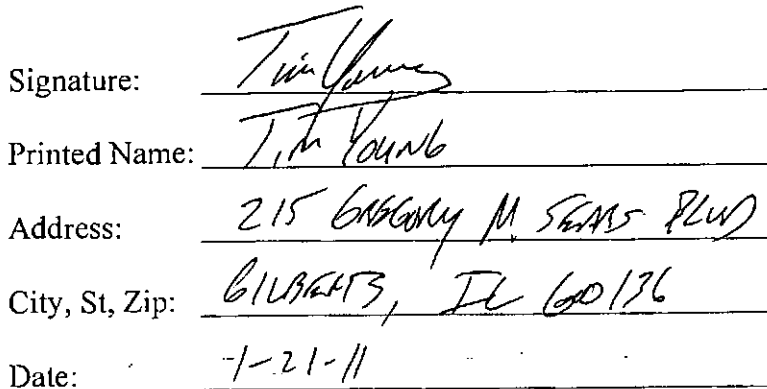 Signature: Tim Young
Printed Name: Tim Young
Address: 215 GREGORY M. SEARS BLVD
City, St, Zip: GILBERTS, IL 60136
Date: 1-21-11